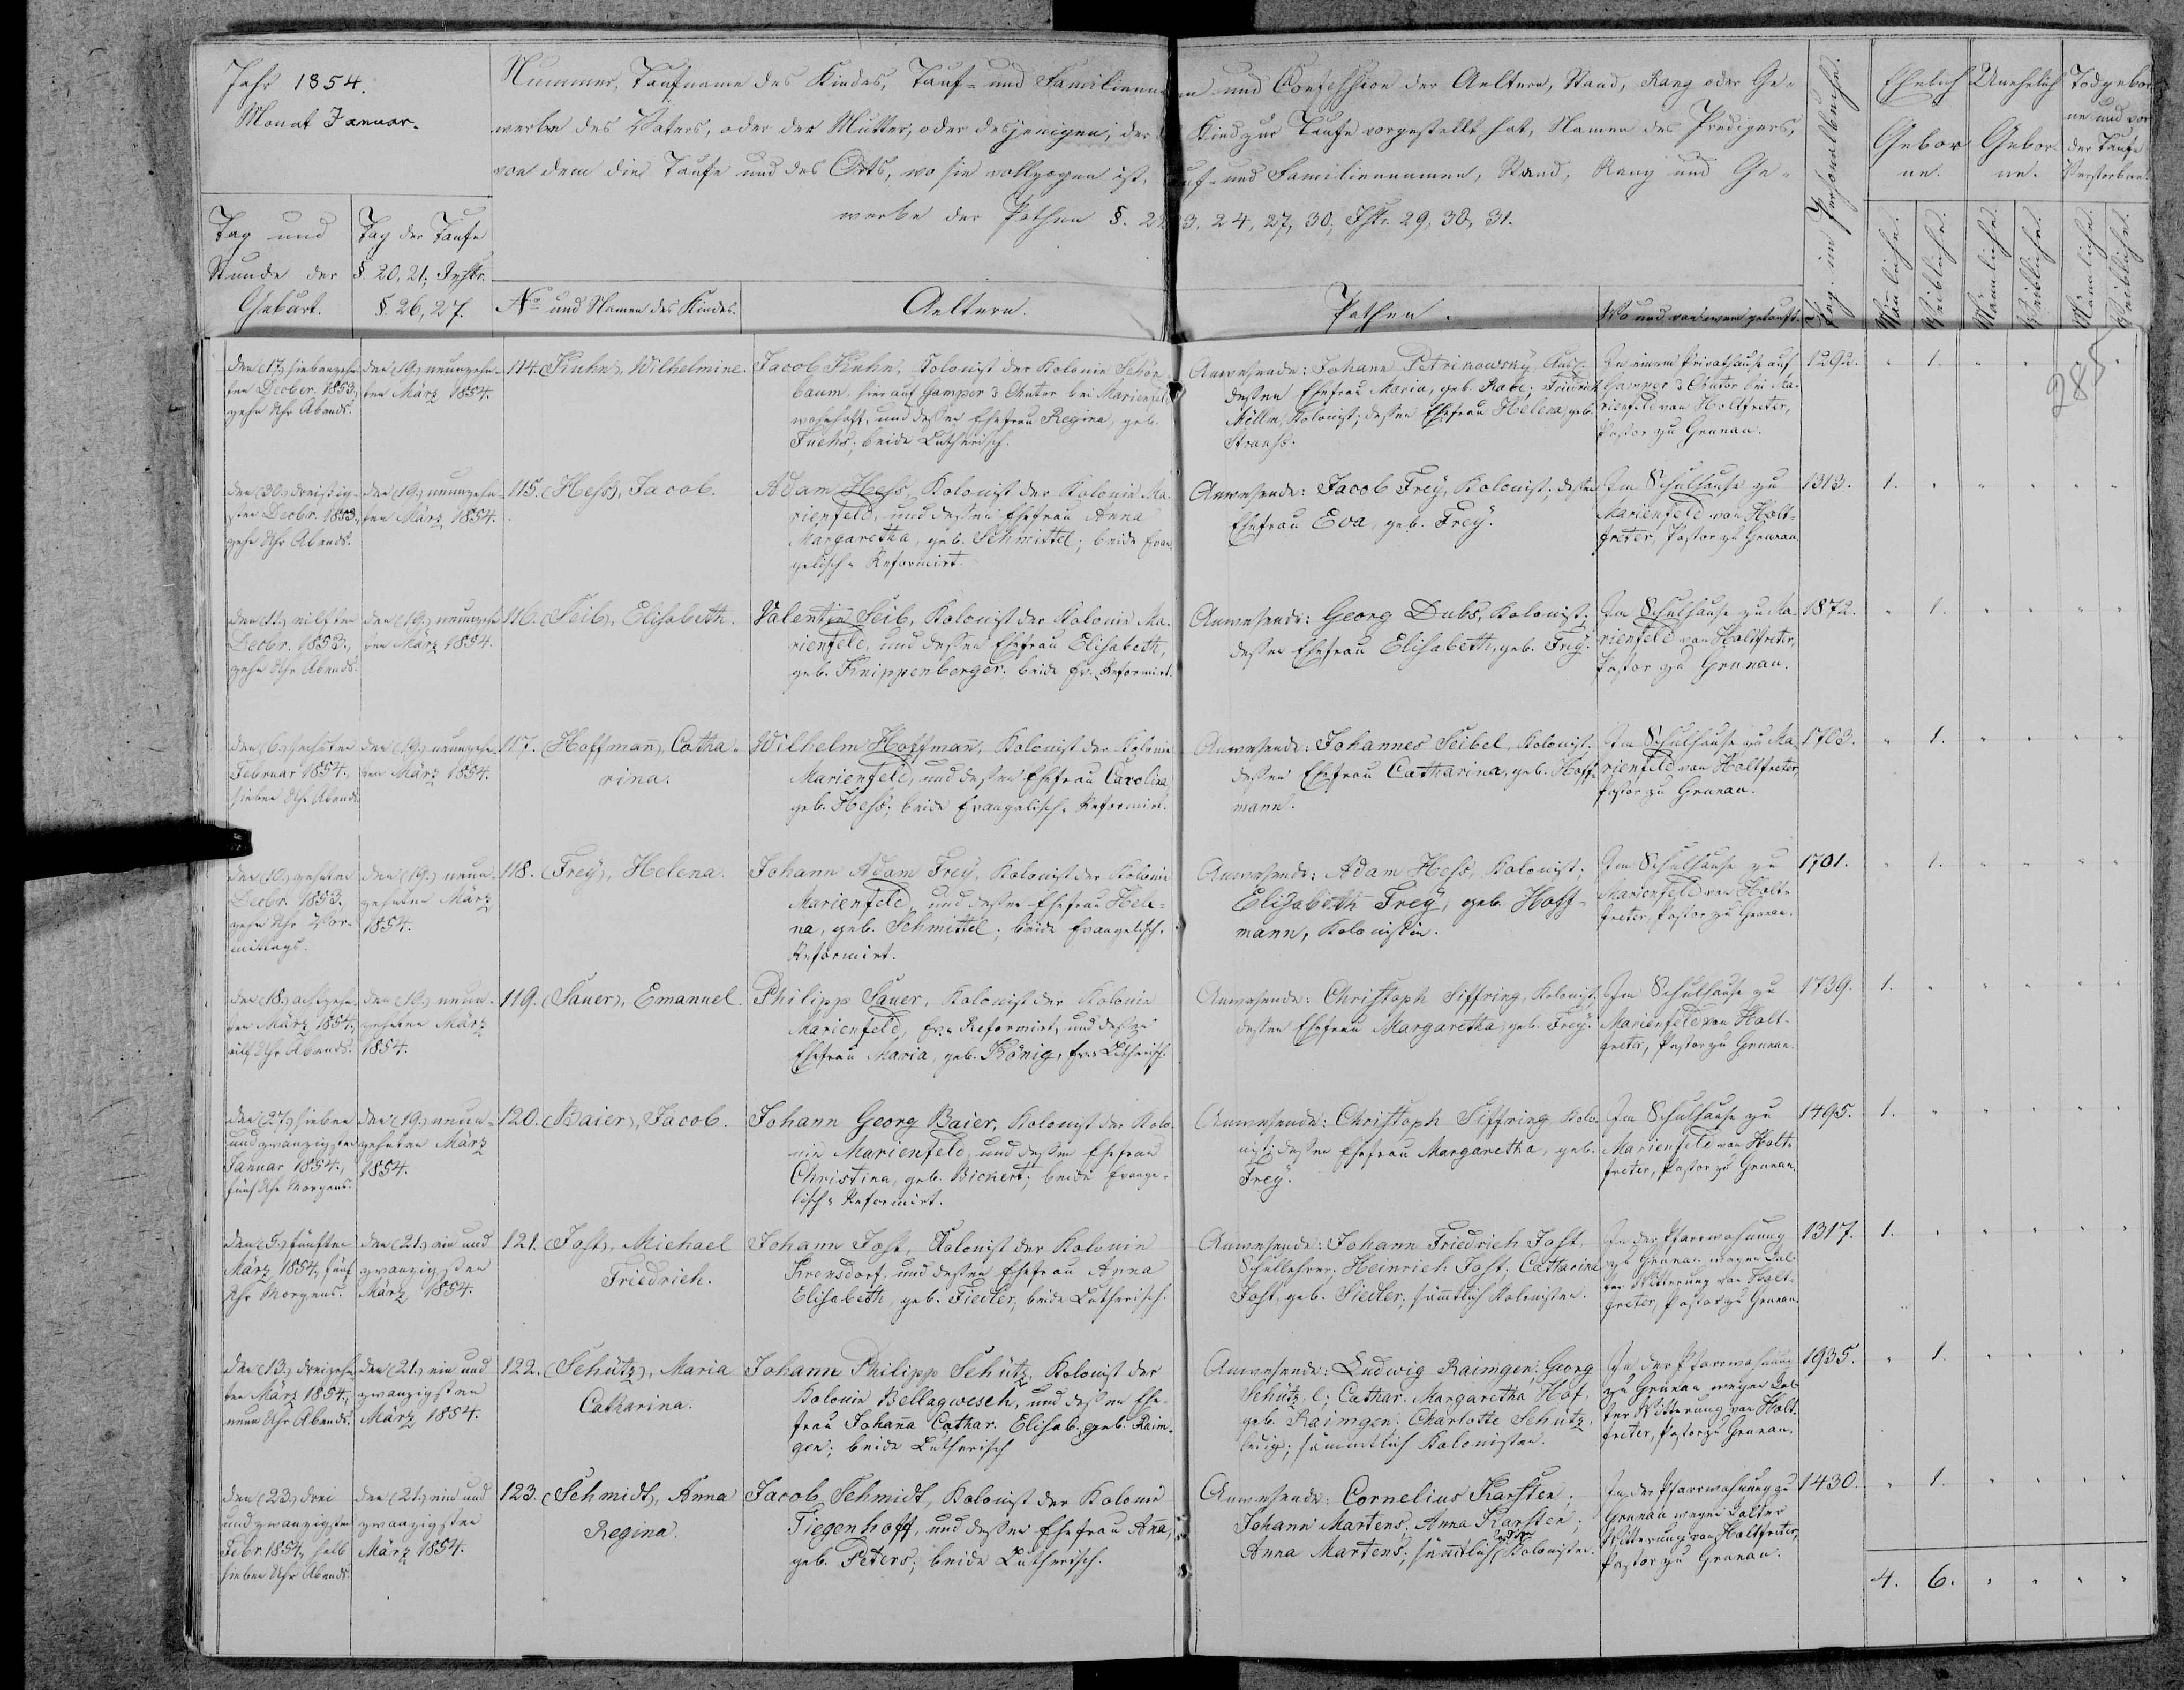 Jahr 1854.
Monat Januar.
Nummer, Taufname des Kindes, Tauf- und Familiennamen und Confession der Aeltern, Stand, Rang oder Ge-
werbe des Vaters, oder der Mutter, oder desjenigen, der das Kind zur Taufe vorgestellt hat, Namen des Predigers,
von dem die Taufe und des Orts, wo sie vollzogen ist, Tauf- und Familiennamen, Stand, Rang und Ge-
werbe der Pathen §. 22, 23, 24, 27, 30, Jstr. 29, 30, 31.
Tag und
Stunde der
Geburt.
Tag der Taufe
§. 20, 21; Instr.
§. 26, 27.
No und Namen des Kindes.
Aeltern.
Pathen.
Wo und von wem getauft.
Pag. im Personalbuche.
Ehelich
Gebor
ne.
Unehelich
Gebor
ne.
Todgebor
ne und vor
der Taufe
Verstorbene.
Männliche.
Weibliche.
Männliche.
Weibliche.
Männliche.
Weibliche.
285
den (17.) siebenzehn
ten Decber. 1853.,
zehn Uhr Abends.
den (19.) neunzehn-
ten März 1854.
114. (Kuhn), Wilhelmine.
Jacob Kuhn, Kolonist der Kolonie Schön
baum, hier auf Gamper's Chutor bei Marienfeld
wohnhaft, und dessen Ehefrau Regina, geb.
Fuchs; beide Lutherisch.
Anwesende: Johann Petrinowsky,
dessen Ehefrau Maria, geb. Rabe; Friedrich
Kolonist; dessen Ehefrau Helena, geb.
Strauhs.
In einem Privathause auf
Gamper's Chutor bei Ma-
rienfeld von Holtfreter,
Pastor zu Grunau.
1292. " 1. " " " "
den (30.) dreißig-
sten Decbr. 1853.,
zehn Uhr Abends.
den (19.) neunzehn-
ten März, 1854.
115. (Hess), Jacob.
Adam Hess, Kolonist der Kolonie Ma-
rienfeld, und dessen Ehefrau Anna
Margaretha, geb. Schmittel; beide Evan
gelisch-Reformirt.
Anwesende: Jacob Frey, Kolonist; dessen
Ehefrau Eva, geb. Frey.
Im Schulhause zu
Marienfeld von Holt-
freter, Pastor zu Grunau.
1313. 1. " " " " "
den (11.) eilften
Decbr. 1853.,
zehn Uhr Abends.
den (19.) neunzehn
ten März 1854.
116. (Seib), Elisabeth.
Valentin Seib, Kolonist der Kolonie Ma-
rienfeld, und dessen Ehefrau Elisabeth,
geb. Knippenberger; beide Ev. Reformirt.
Anwesende: Georg Dubs, Kolonist;
dessen Ehefrau Elisabeth, geb. Frey.
Im Schulhause zu Ma-
rienfeld von Holtfreter,
Pastor zu Grunau.
1872. " 1. " " " "
den (6.) sechsten
Februar 1854.,
sieben Uhr Abends.
den (19.) neunzehn-
ten März 1854.
117. (Hoffmann), Catha-
rina.
Wilhelm Hoffmann, Kolonist der Kolonie
Marienfeld, und dessen Ehefrau Carolina
geb. Hess; beide Evangelisch-Reformirt.
Anwesende: Johannes Seibel, Kolonist;
dessen Ehefrau Catharina, geb. Hoff-
mann.
Im Schulhause zu Ma-
rienfeld von Holtfreter,
Pastor zu Grunau.
1703. " 1. " " " "
den (10.) zehnten
Decbr. 1853.,
zehn Uhr Vor-
mittags.
den (19.) neun-
zehnten März
1854.
118. (Frey), Helena.
Johann Adam Frey, Kolonist der Kolonie
Marienfeld, und dessen Ehefrau Hele-
na, geb. Schmittel; beide Evangelisch-
Reformirt.
Anwesende: Adam Hess, Kolonist;
Elisabeth Frey, geb. Hoff-
mann, Kolonistin.
Im Schulhause zu
Marienfeld von Holt-
freter, Pastor zu Grunau.
1701. " 1. " " " "
den (18.) achtzehn
ten März 1854.,
eilf Uhr Abends.
den (19.) neun-
zehnten März
1854.
119. (Sauer), Emanuel.
Philipp Sauer, Kolonist der Kolonie
Marienfeld, Ev. Reformirt, und dessen
Ehefrau Maria, geb. König, Ev. Lutherisch.
Anwesende: Christoph Siffring, Kolonist;
dessen Ehefrau Margaretha, geb. Frey.
Im Schulhause zu
Marienfeld von Holt-
freter, Pastor zu Grunau.
1739. 1. " " " " "
den (27.) sieben
und zwanzigsten
Januar 1854.,
fünf Uhr Morgens.
den (19.) neun-
zehnten März
1854.
120. (Baier), Jacob.
Johann Georg Baier, Kolonist der Kolo-
nie Marienfeld, und dessen Ehefrau
Christina, geb. Bickert; beide Evange-
lisch-Reformirt.
Anwesende: Christoph Siffring, Kolo-
nist; dessen Ehefrau Margaretha, geb.
Frey.
Im Schulhause zu
Marienfeld von Holt-
freter, Pastor zu Grunau.
1495. 1. " " " " "
den (5.) fünften
März 1854., fünf
Uhr Morgens.
den (21.) ein und
zwanzigsten
März 1854.
121. (Jost), Michael
Friedrich.
Johann Jost, Kolonist der Kolonie
Kronsdorf, und dessen Ehefrau Anna
Elisabeth, geb. Fiedler; beide Lutherisch.
Anwesende: Johann Friedrich Jost,
Schullehrer; Heinrich Jost; Catharina
Jost, geb. Siedler; sämtlich Kolonisten.
In der Pfarrwohnung
zu Grunau wegen kal-
ter Witterung von Holt-
freter, Pastor zu Grunau.
1317. 1. " " " " "
den (13.) dreizehn
ten März 1854.,
neun Uhr Abends.
den (21.) ein und
zwanzigsten
März 1854.
122. (Schütz), Maria
Catharina.
Johann Philipp Schütz, Kolonist der
Kolonie Bellagwesch, und dessen Ehe-
frau Johanna Cathar. Elisab., geb. Raim-
gen; beide Lutherisch
Anwesende: Ludwig Raimgen; Georg
Schütz; Cathar. Margaretha Hof,
geb. Raimgen; Charlotte Schütz,
ledig; sämmtlich Kolonisten.
In der Pfarrwohnung
zu Grunau wegen kal-
ter Witterung von Holt-
freter, Pastor zu Grunau.
1935. " 1. " " " "
den (23.) drei
und zwanzigsten
Febr. 1854., halb
sieben Uhr Abends.
den (21.) ein und
zwanzigsten
März 1854.
123. (Schmidt), Anna
Regina.
Jacob Schmidt, Kolonist der Kolonie
Tiegenhoff, und dessen Ehefrau Anna,
geb. Peters; beide Lutherisch.
Anwesende: Cornelius Karsten;
Johann Martens; Anna Karsten;
Anna Martens; sämmtlich Kolonisten.
In der Pfarrwohnung zu
Grunau wegen kalter
Witterung von Holtfreter,
Pastor zu Grunau.
1430. " 1. " " " "
4. 6. " " " "